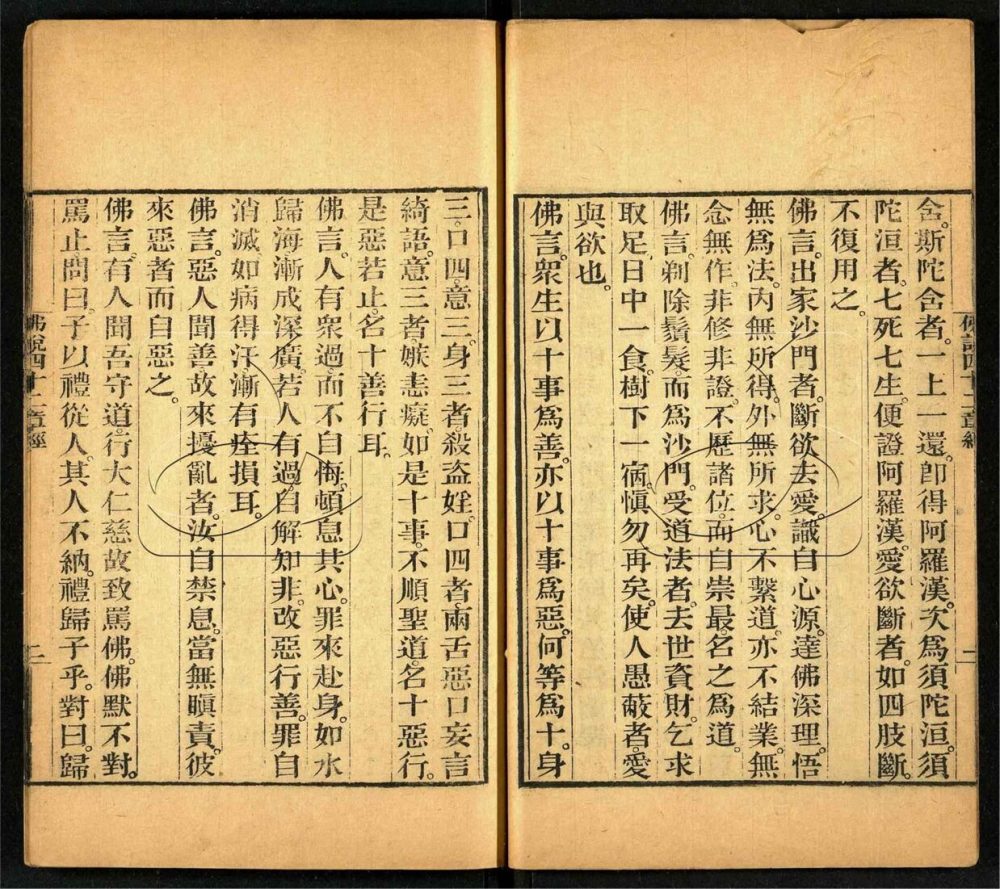 舍。斯陀含者。一上一還。卽得阿羅漢。次爲須陀洹。須
陀洹者。七死七生。便證阿羅漢。愛欲斷者。如四肢斷。
不復用之。
佛言。出家沙門者。斷欲去愛。識自心源。達佛深理。悟
無爲法。內無所得。外無所求。心不繫道。亦不結業。無
念無作。非修非證。不歷諸位。而自崇最。名之爲道。
佛言。剃除鬚髮。而爲沙門。受道法者。去世資財。乞求
取足。日中一食。樹下一宿。愼勿再矣。使人愚蔽者。愛
與欲也。
佛言。衆生以十事爲善。亦以十事爲惡。何等爲十。身
佛說四十二章經
二
三。口四。意三。身三者。殺盜婬。口四者。兩舌惡口妄言
綺語。意三者。嫉恚癡。如是十事。不順聖道。名十惡行。
是惡若止。名十善行耳。
佛言。人有衆過。而不自悔。頓息其心。罪來赴身。如水
歸海。漸成深廣。若人有過。自解知非。改惡行善。罪自
消滅。如病得汗。漸有痊損耳。
佛言。惡人聞善。故來擾亂者。汝自禁息。當無瞋責。彼
來惡者。而自惡之。
佛言。有人聞吾守道。行大仁慈。故致罵佛。佛默不對。
罵止。問曰。子以禮從人。其人不納。禮歸子乎。對曰。歸
佛說四十二章經
二